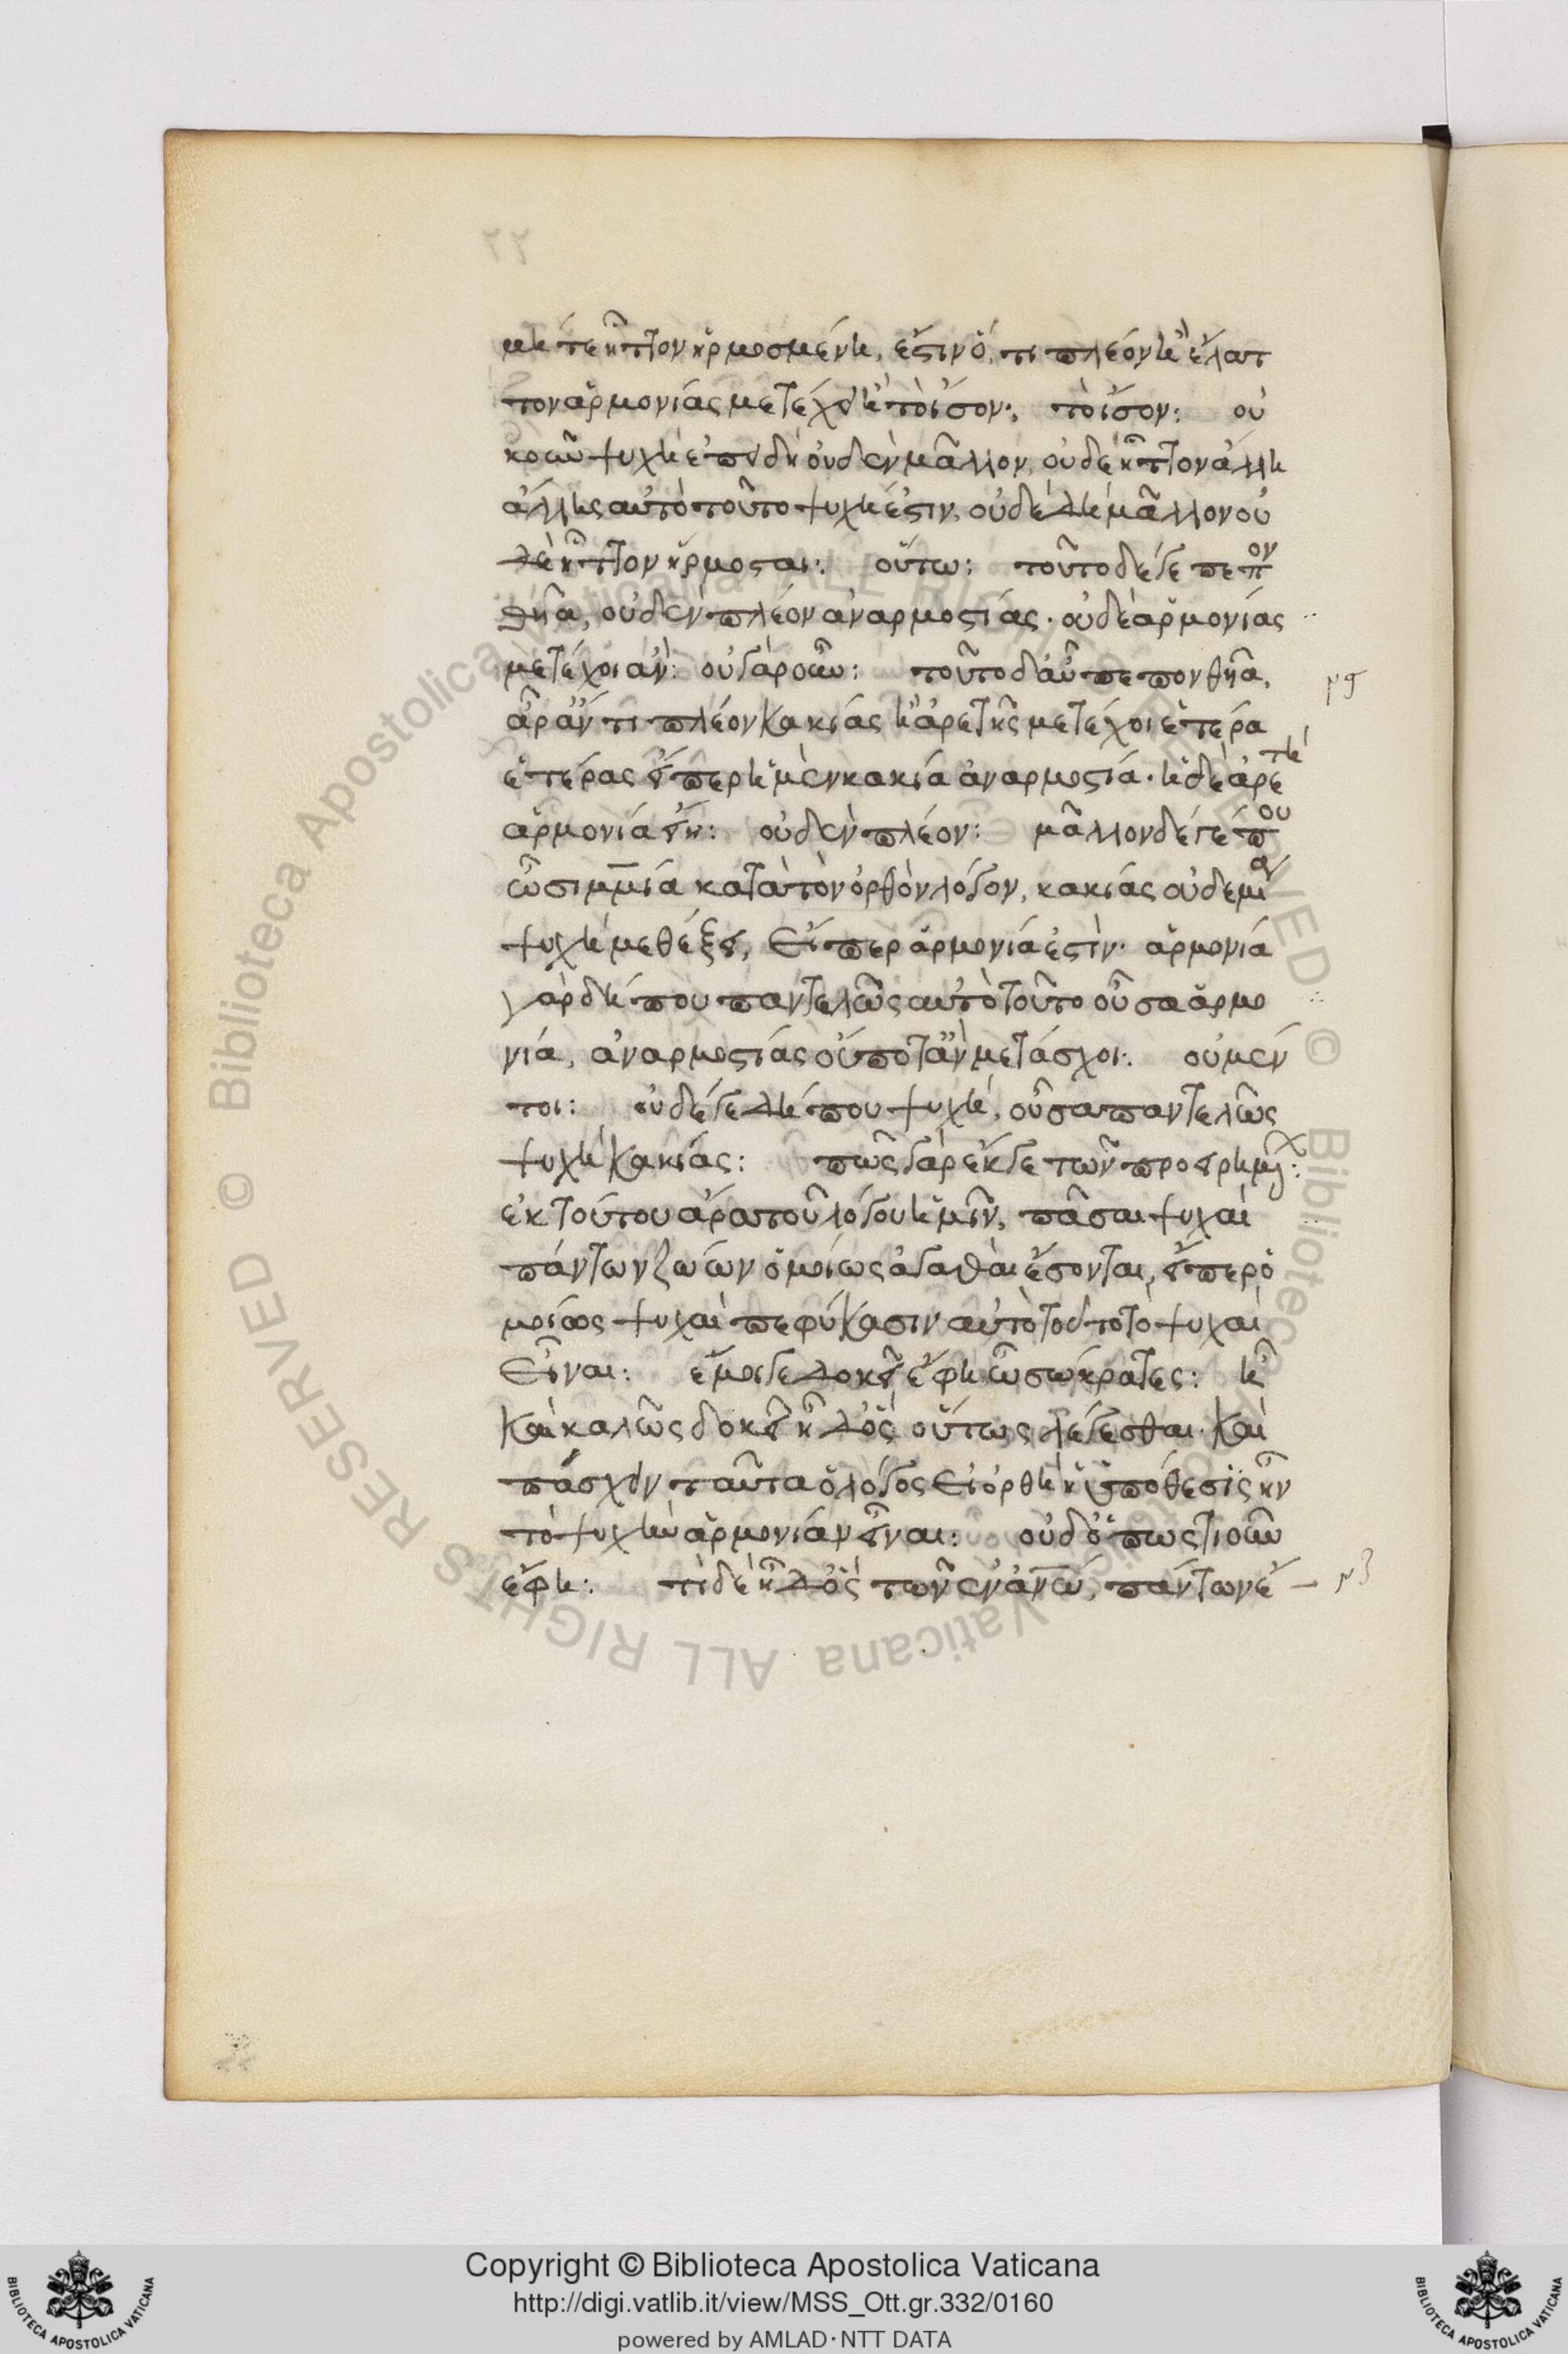 μήτε ἧττον ἡρμοσμένη, ἔστιν ὅ,τι πλέον ἢ ἔλατ
τον ἁρμονίας μετέχει ἢ τὸ ἴσον·, τὸ ἴσον: οὐ
κοῦν ψυχὴ ἐπειδὴ οὐδὲν μᾶλλον, οὐδὲ ἧττον ἄλλη
ἄλλης αὐτὸ τοῦτο ψυχή ἐστιν, οὐδὲ δὴ μᾶλλον οὐ
δὲ ἧττον ἥρμοσται:. οὕτω: τοῦτο δέ γε πεπον
θῆα, οὐδὲν πλέον ἀναρμοστίας· οὐδὲ ἁρμονίας
μετέχοι ἄν: οὐ γὰρ οὖν: τοῦτο δ' αὖ πεπονθῆα,
ἆρ' ἄν τι πλέον κακίας ἢ ἀρετῆς μετέχοι ἑτέρα
ἑτέρας εἴπερ ἡ μὲν κακία ἀναρμοστία· ἡ δὲ ἀρετὴ
ἁρμονία εἴη: οὐδὲν πλέον: μᾶλλον δέ γέ που
ὦ σιμμία κατὰ τὸν ὀρθὸν λόγον, κακίας οὐδεμία
ψυχὴ μεθέξει, εἴπερ ἁρμονία ἐστίν· ἁρμονία
γὰρ δήπου παντελῶς αὐτὸ τοῦτο οὖσα ἁρμο
νία, ἀναρμοστίας οὔποτ' ἂν μετάσχοι:. οὐ μέν
τοι: οὐδέ γε δήπου ψυχή, οὖσα παντελῶς
ψυχὴ κακίας: πῶς γὰρ ἔκ γε τῶν προειρημένων:
ἐκ τούτου ἄρα τοῦ λόγου ἡμῖν, πᾶσαι ψυχαὶ
πάντων ζώων ὁμοίως ἀγαθαὶ ἔσονται, εἴπερ ὁ
μοίως ψυχαὶ πεφύκασιν αὐτὸ τοῦτο τὸ ψυχαὶ
εἶναι: ἔμοιγε δοκεῖ ἔφη ὦ σώκρατες: ἦ
καὶ καλῶς δοκεῖ ἦ δ' ὅς οὕτως λέγεσθαι· καὶ
πάσχειν ταῦτα ὁ λόγος εἰ ὀρθὴ ἡ ὑπόθεσις ἦν
τὸ ψυχὴν ἁρμονίαν εἶναι: οὐδ' ὅπως τιοῦν
ἔφη: τί δέ ἦ δ' ὅς τῶν ἐν ἀνω, πάντων ἔ
Copyright © Biblioteca Apostolica Vaticana
http://digi.vatlib.it/view/MSS_Ott.gr.332/0160
powered by AMLAD·NTT DATA